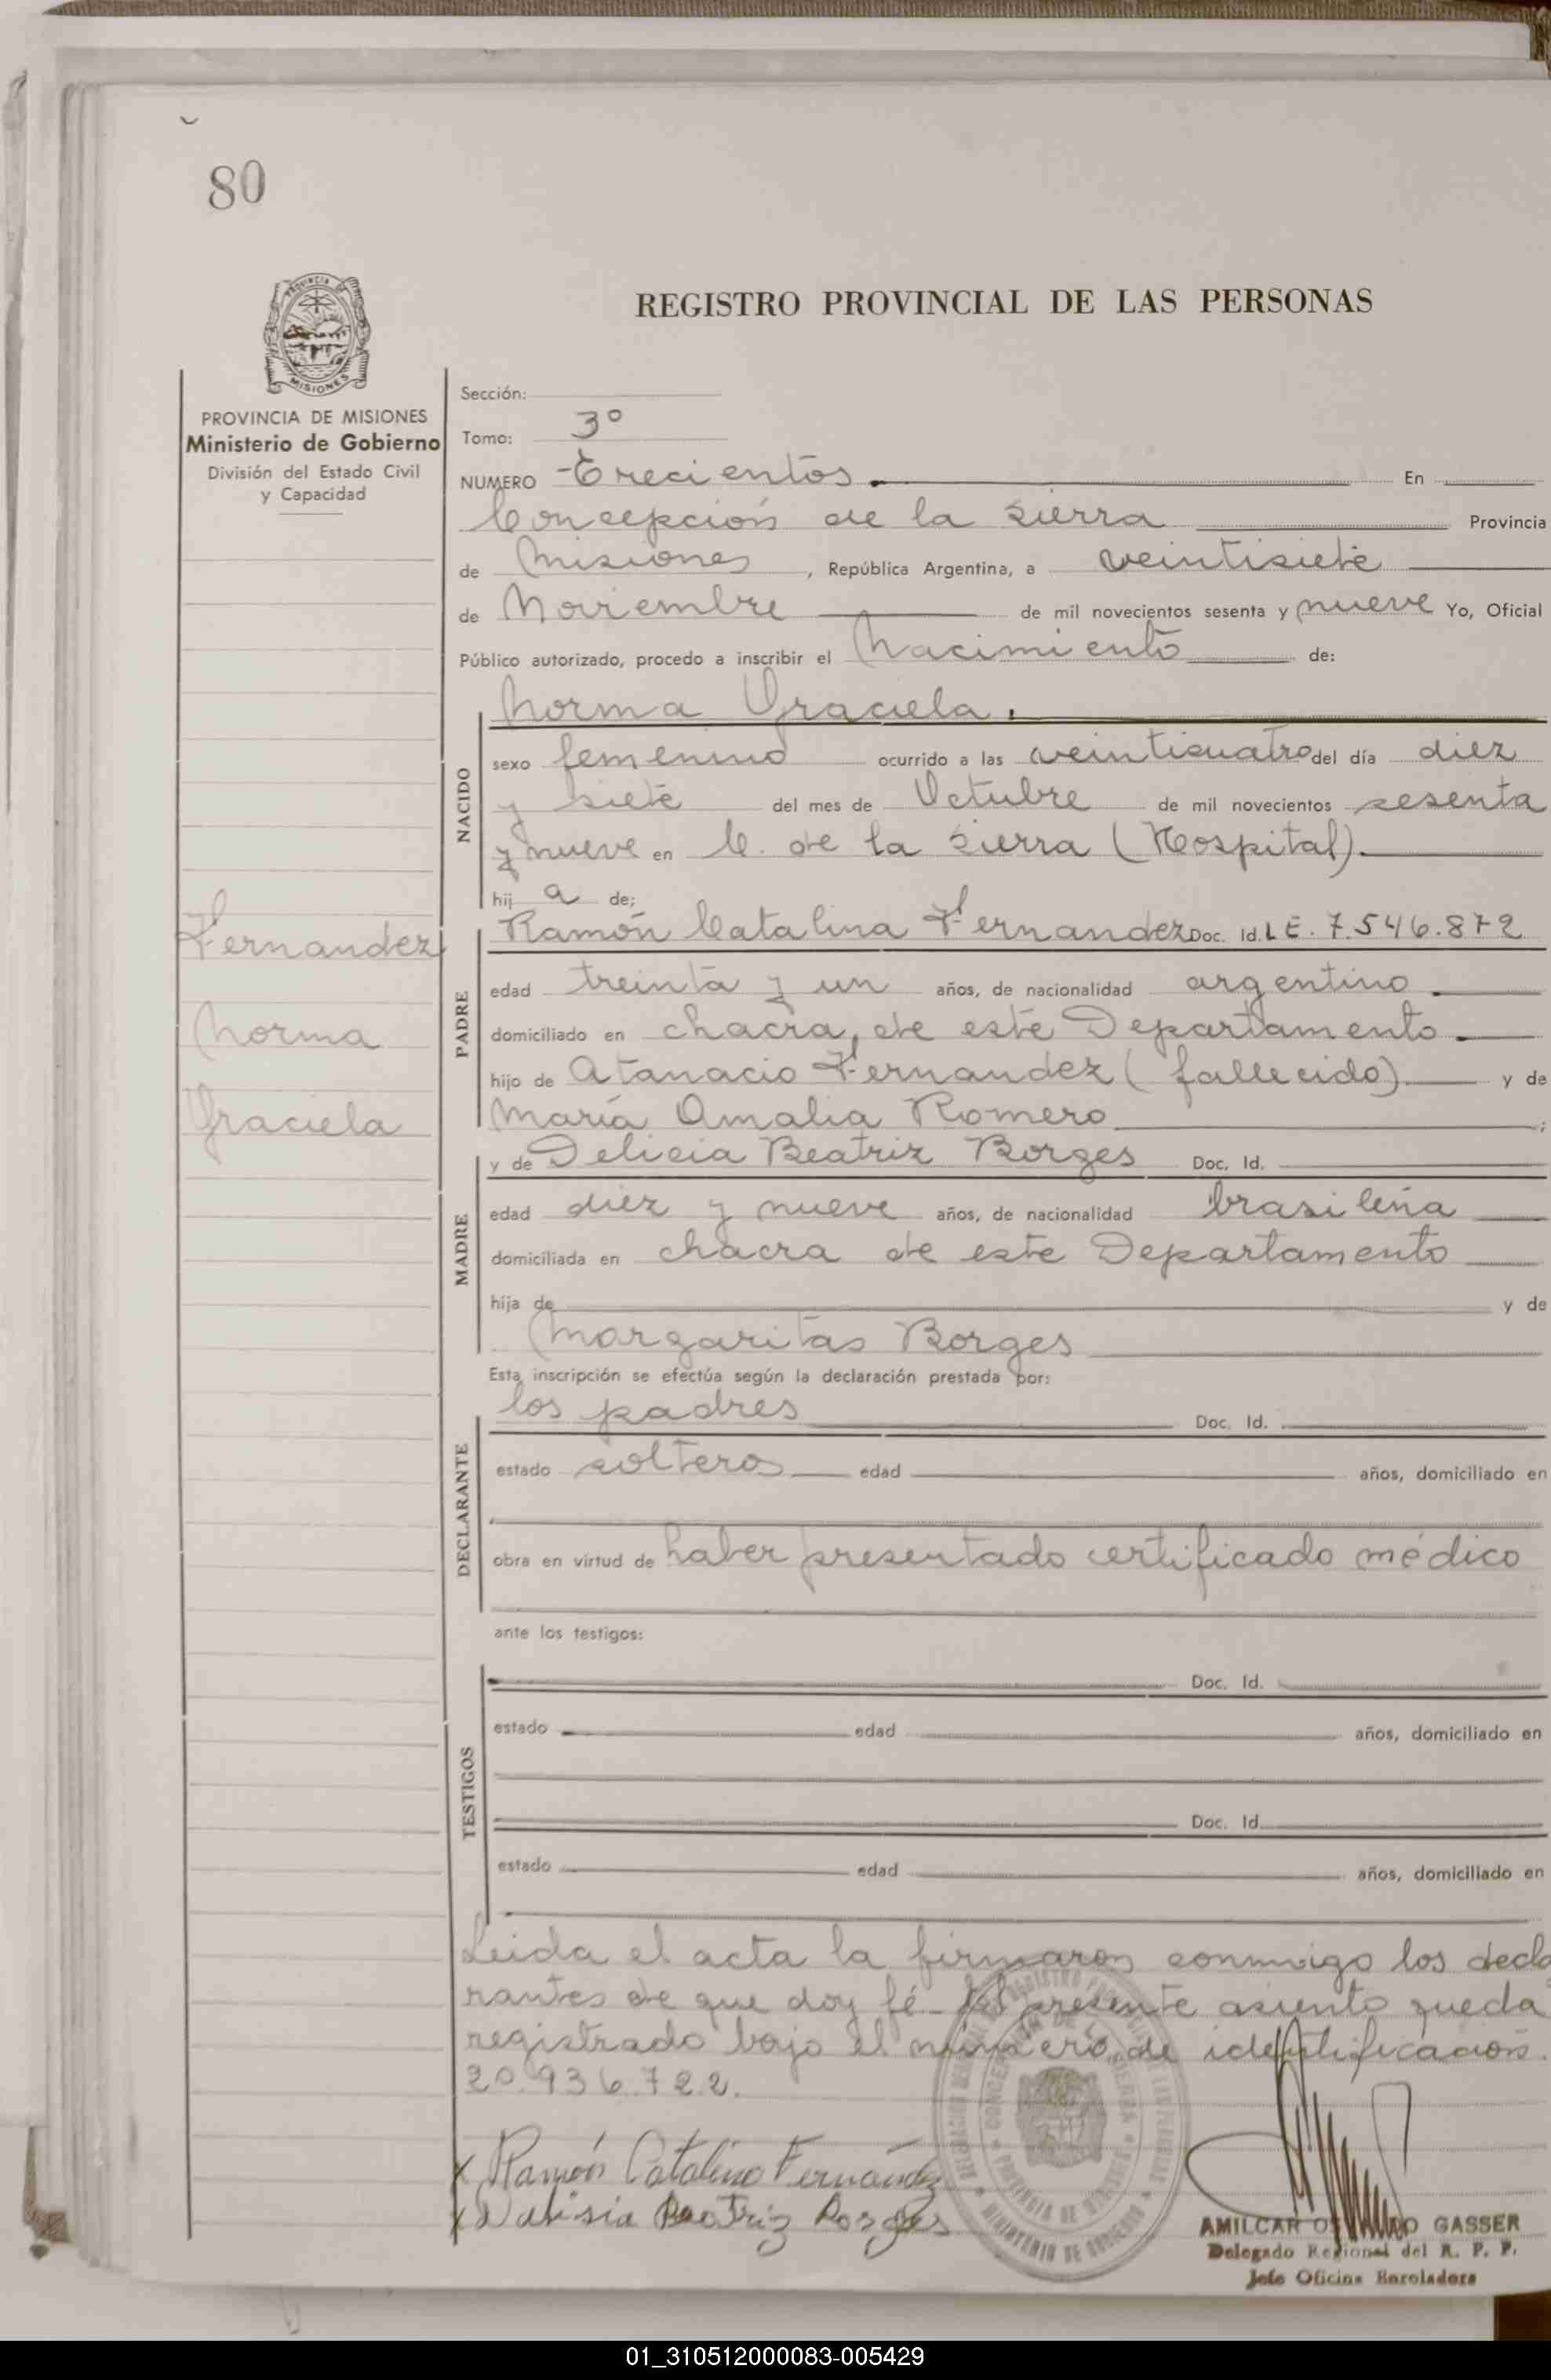 80
REGISTRO PROVINCIAL DE LAS PERSONAS
PROVINCIA DE MISIONES
Ministerio de Gobierno
División del Estado Civil
y Capacidad
Sección:
Tomo: 3º
NUMERO Trecientos. En
Concepción de la Sierra Provincia
de Misiones, República Argentina, a veintisiete
de Noviembre de mil novecientos sesenta y nueve Yo, Oficial
Público autorizado, procedo a inscribir el Nacimiento de:
Norma Graciela.
NACIDO
sexo femenino ocurrido a las veinticuatro del día diez
y siete del mes de Octubre de mil novecientos sesenta
y nueve en C. de la Sierra (Hospital).
hij a de;
Fernandez
Norma
Graciela
PADRE
Ramón Catalina Fernandez Doc. Id. L E. 7.546.872
edad treinta y un años, de nacionalidad argentino.
domiciliado en chacra, de este Departamento.
hijo de Atanacio Fernandez (fallecido). y de
María Amalia Romero ;
MADRE
y de Delicia Beatriz Borges Doc. Id.
edad diez y nueve años, de nacionalidad brasileña
domiciliada en chacra de este Departamento
hija de y de
Margaritas Borges
Esta inscripción se efectúa según la declaración prestada por:
DECLARANTE
los padres Doc. Id.
estado solteros edad años, domiciliado en
obra en virtud de haber presentado certificado médico
ante los testigos:
TESTIGOS
Doc. Id.
estado edad años, domiciliado en
Doc. Id.
estado edad años, domiciliado en
Leida el acta la firmaron conmigo los decla
rantes de que doy fé. El presente asiento queda
registrado bajo el número de identificación.
20.936.722.
x Ramón Catalino Fernández
x Beatriz Borges
AMILCAR GASSER
Delegado Regional del R. P. P.
Jefe Oficina Enroladora
01_310512000083-005429